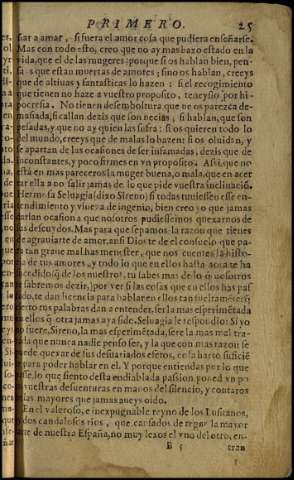 PRIMERO. 25
ñar a amar, si fuera el amor cosa que pudiera enseñarse.
Mas con todo esto, creo que no ay mas baxo estado en la
vida, que el de las mugeres: porque si os hablan bien, pen-
says que estan muertas de amores; si no os hablan, creeys
que de altiuas y fantasticas lo hazen: si el recogimiento
que tienen no haze a vuestro proposito, teneyslo por hi-
pocresia. No tienen desemboltura que no os parezca de-
masiada, si callan dezis que son necias, si hablan, que son
pesadas, y que no ay quien las sufra: si os quieren todo lo
del mundo, creeys que de malas lo hazen: si os oluidan, y
se apartan de las ocasiones de ser infamadas, dezis que de
inconstantes, y poco firmes en vn proposito. Assi que no
está en mas pareceros la muger buena, o mala, que en acer
tar ella a no salir jamas de lo que pide vuestra inclinacion.
Hermosa Seluagia (dixo Sireno) si todas tuuiessen esse en-
tendimiento y viueza de ingenio, bien creo yo que jamas
darian ocasion a que nosotros pudiessemos quexarnos de
sus descuydos. Mas para que sepamos la razon que tienes
de agrauiarte de amor, assi Dios te dé el consuelo que pa-
ra tan graue mal has menester, que nos cuentes la histo-
ria de tus amores, y todo lo que en ellos hasta aora te ha
succedido (que de los nuestros, tu sabes mas de lo que nosotros
te sabremos dezir,) por ver si las cosas que en ellos has pas-
sado, te dan licencia para hablar en ellos tan sueltamẽte: q̃
cierto tus palabras dan a entender, ser la mas esperimẽtada
en ellos q̃ otra jamas aya sido. Seluagia le respõdio: Si yo
no fuere, Sireno, la mas esperimẽtada, seré la mas mal tra-
tada que nunca nadie penso ser, y la que con mas razon se
puede quexar de sus desuariados efetos, cosa harto suficiẽ
te para poder hablar en el. Y porque entiendas por lo que
passé, lo que siento desta endiablada passion, poned vn po
co vuestras desuenturas en manos del silencio, y contaros
he las mayores que jamas aueys oido.
En el valeroso, e inexpugnable reyno de los Lusitanos,
ay dos caudalosos rios, que cansados de regar la mayor
parte de nuestra España, no muy lexos el vno del otro, en-
B 5 tran